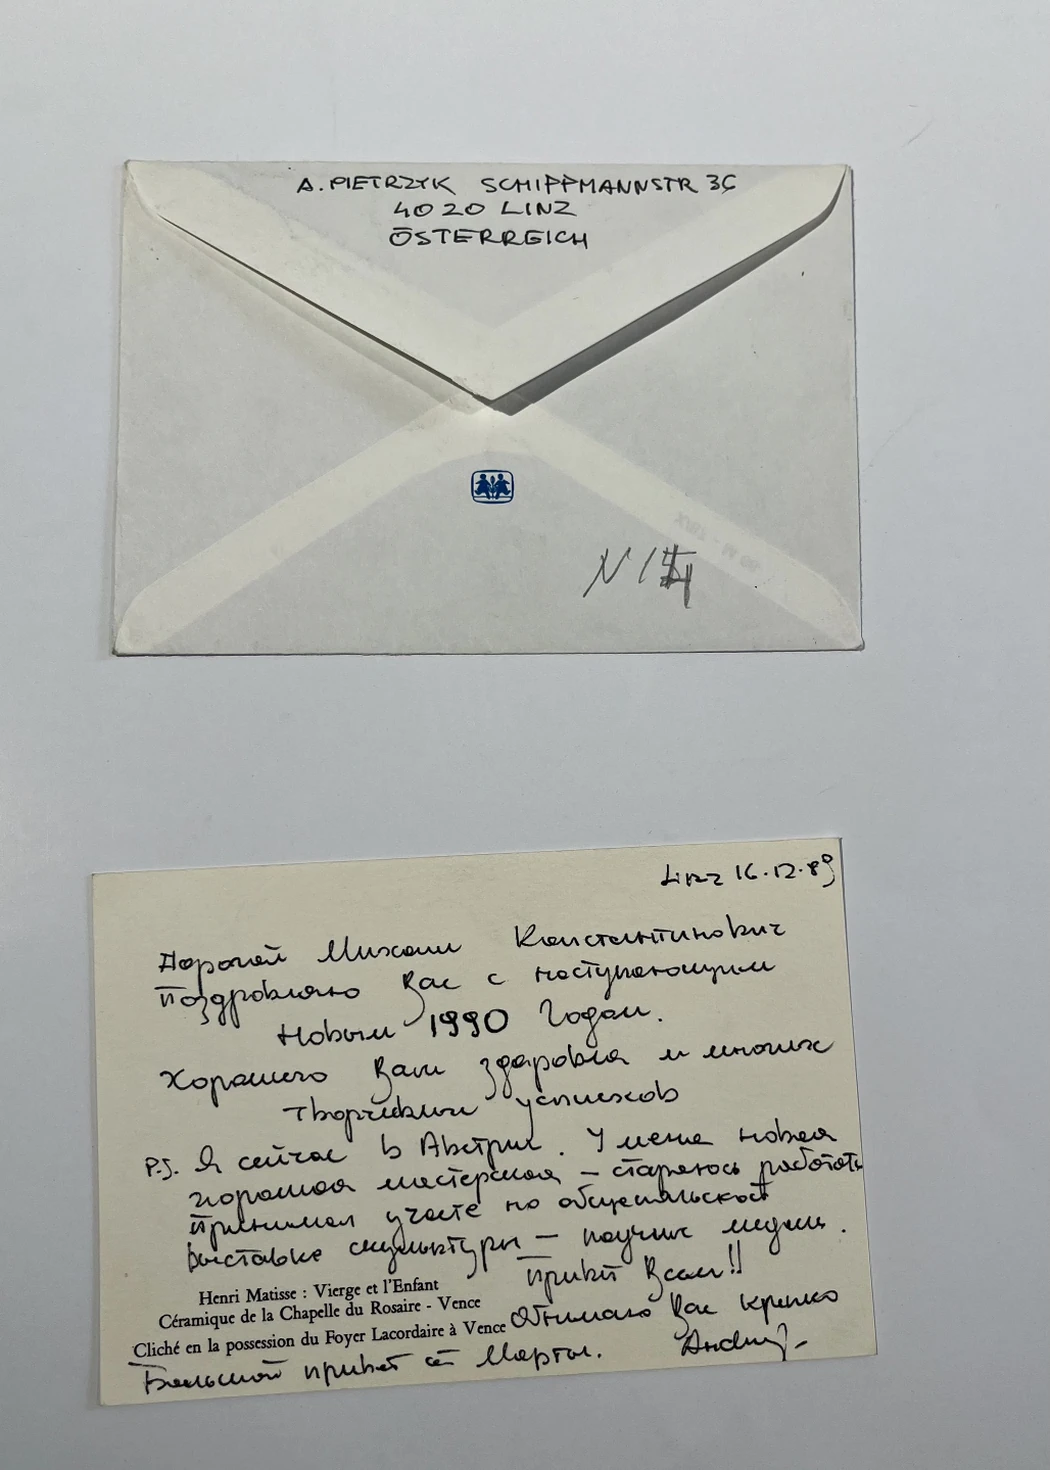 A. PIETRZYK SCHIPPMANNSTR 36
4020 LINZ
ÖSTERREICH
N 1
Linz 16.12.89
Дорогой Михаил Константинович
Поздровляю Вас с наступающим
Новым 1990 Годом.
Хорошего Вам здаровья и многих
творческих успехов
P.S. Я сейчас в Австрии. У меня новая
хорошая мастерская – стараюсь работать
Принимал участе на
Выставке скульптуры –
Привет Всем!!
Henri Matisse : Vierge et l'Enfant
Céramique de la Chapelle du Rosaire - Vence
Cliché en la possession du Foyer Lacordaire à Vence
Обнимаю Вас крепко
Большой привет от Марты.
Andrzej